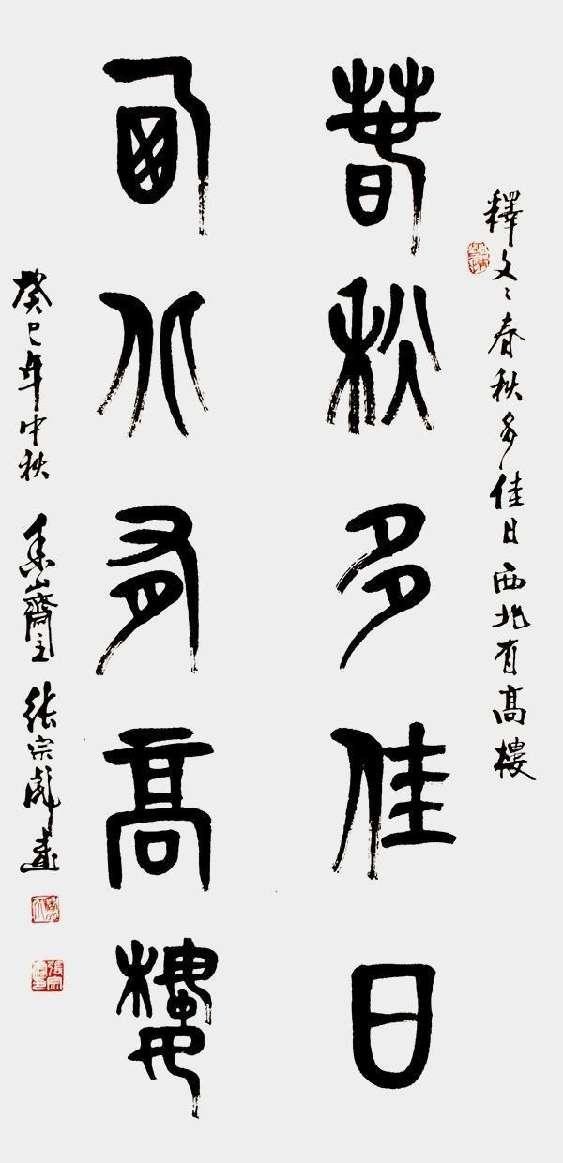 釋文：春秋多佳日西北有高樓
春秋多佳日
西北有高樓
癸巳年中秋 香山齋主 張宗彪書